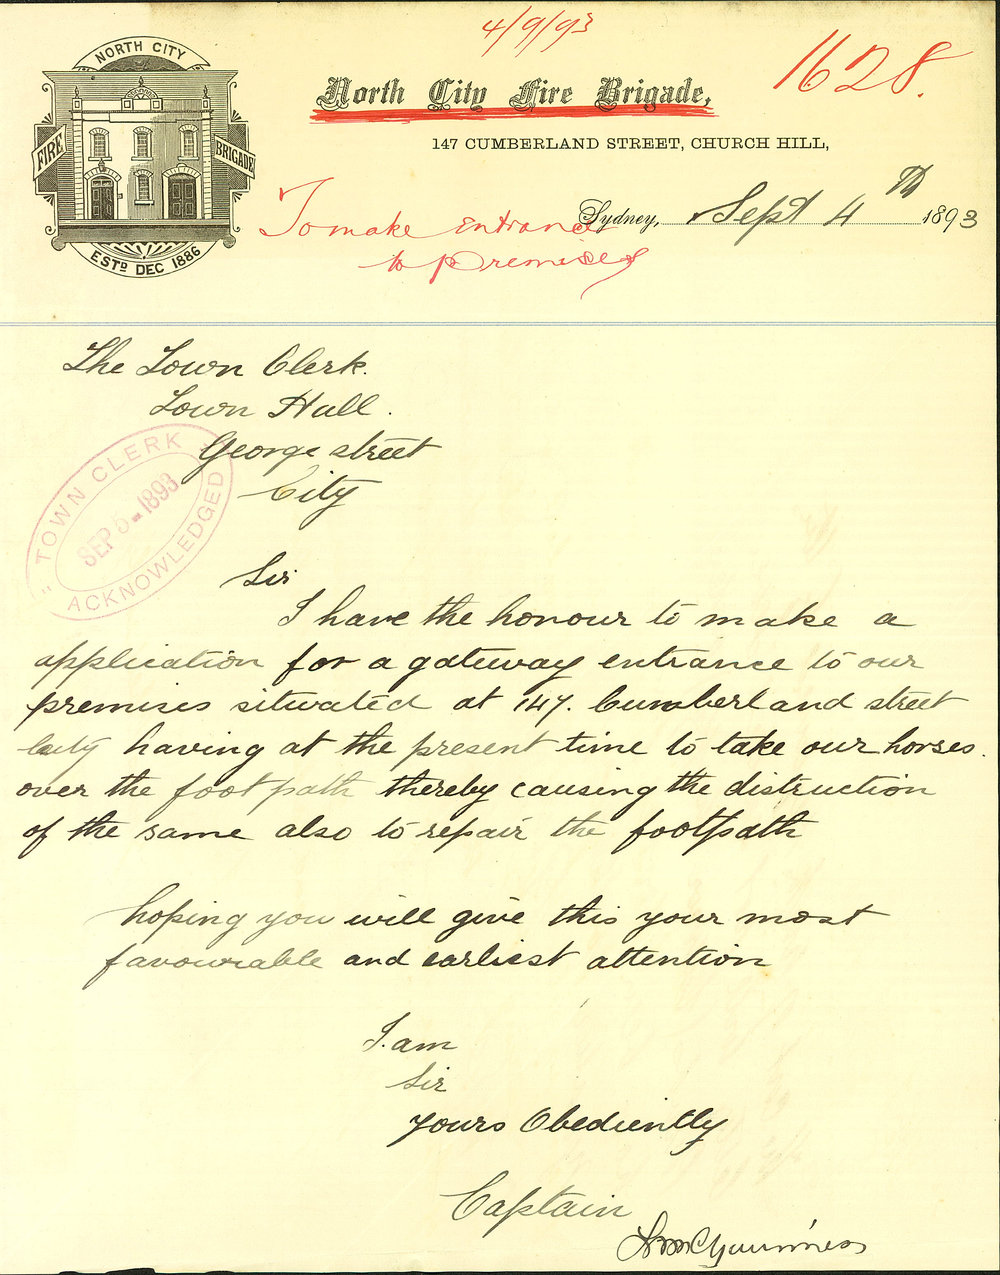 4/9/93
1628.
NORTH CITY
FIRE BRIGADE
ESTD DEC 1886
North City Fire Brigade,
147 CUMBERLAND STREET, CHURCH HILL,
Sydney, Sept 4th 1893
To make entrance
to premises
The Town Clerk.
Town Hall.
George street
City
TOWN CLERK
SEP 5-1893
ACKNOWLEDGED
Sir
I have the honour to make a
application for a gateway entrance to our
premises situated at 147. Cumberland street
City having at the present time to take our horses.
over the foot path thereby causing the distruction
of the same also to repair the footpath
hoping you will give this your most
favourable and earliest attention
I. am
Sir
yours Obediently
Captain